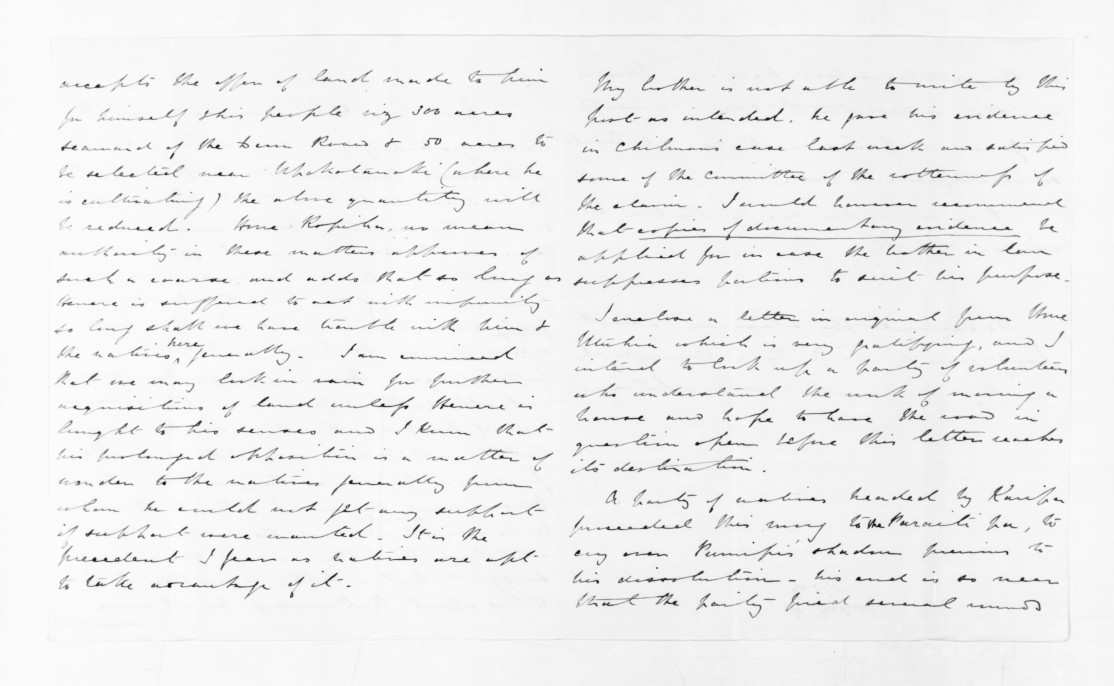 accepts the offer of land made to him
for himself & his people viz 300 acres
seaward of the Devon Road & 50 acres to
be selected near Whakatanoki (where he
is cultivating) the above quantity will
be reduced. Hone Ropiha, no mean
authority in these matters approves of
such a course and adds that so long as
Henere is suffered to act with impunity
so long shall we have trouble with him &
the natives here generally. I am convinced
that we may look in vain for further
acquisitions of land unless Henere is
brought to his senses and I know that
his prolonged opposition is a matter of
wonder to the natives generally from
whom he could not get any support
if support were wanted. It is the
precedent I fear as natives are apt
to take advantage of it.
My brother is not able to write by this
post as intended, he gave his evidence
in Chilman's case last week and satisfied
some of the Committee of the rottenness of
the claim. I would however recommend
that copies of documentary evidence be
applied for in case the brother in law
suppresses portions to suit his purpose.
I enclose a letter in original from Hone
which is very gratifying, and I
intend to look up a party of volunteers
who understand the work of moving a
house and hope to have the road in
question open before this letter reaches
its destination.
A party of natives headed by Karipa
proceeded this morng to the Paraiti pa, to
cry over shadow previous to
his dissolution - his end is so near
that the party fired several rounds